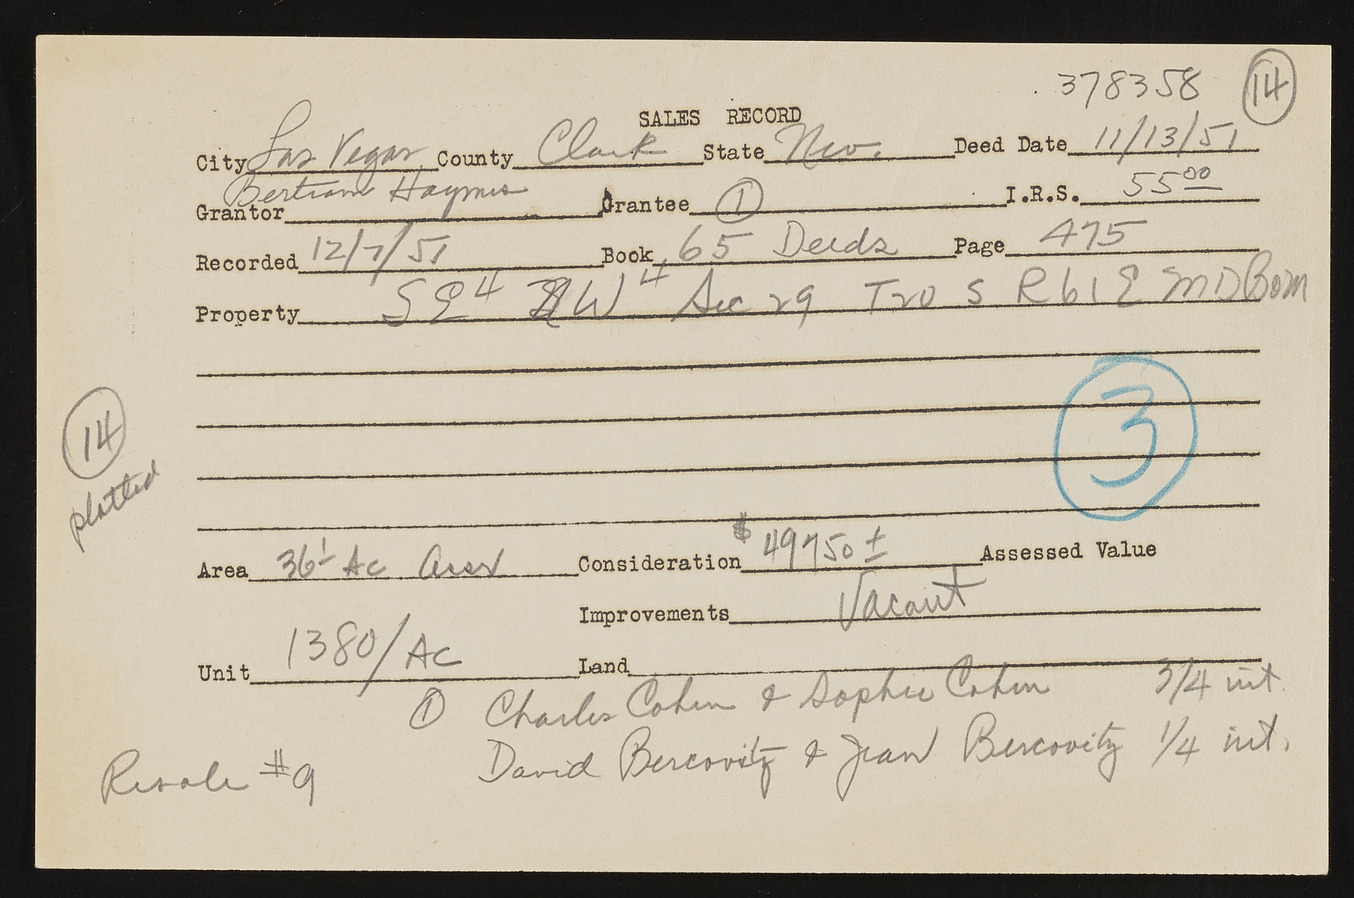 378358 14
SALES RECORD
City Las Vegas County Clark State Nev. Deed Date 11/13/51
Grantor Bertram Haymes Grantee 1 I.R.S. 55 00
Recorded 12/7/51 Book 65 Deeds Page 475
Property SE 4 NW 4 Sec 29 T20 S R61E MDB&M
3
14
platted
Area 36± Ac Consideration $ 49750 ± Assessed Value
Improvements Vacant
Unit 1380/Ac Land
1 Charles Cohen & Sophie Cohen 3/4 int.
David Bercovitz & Jean Bercovitz 1/4 int.
Resale #9